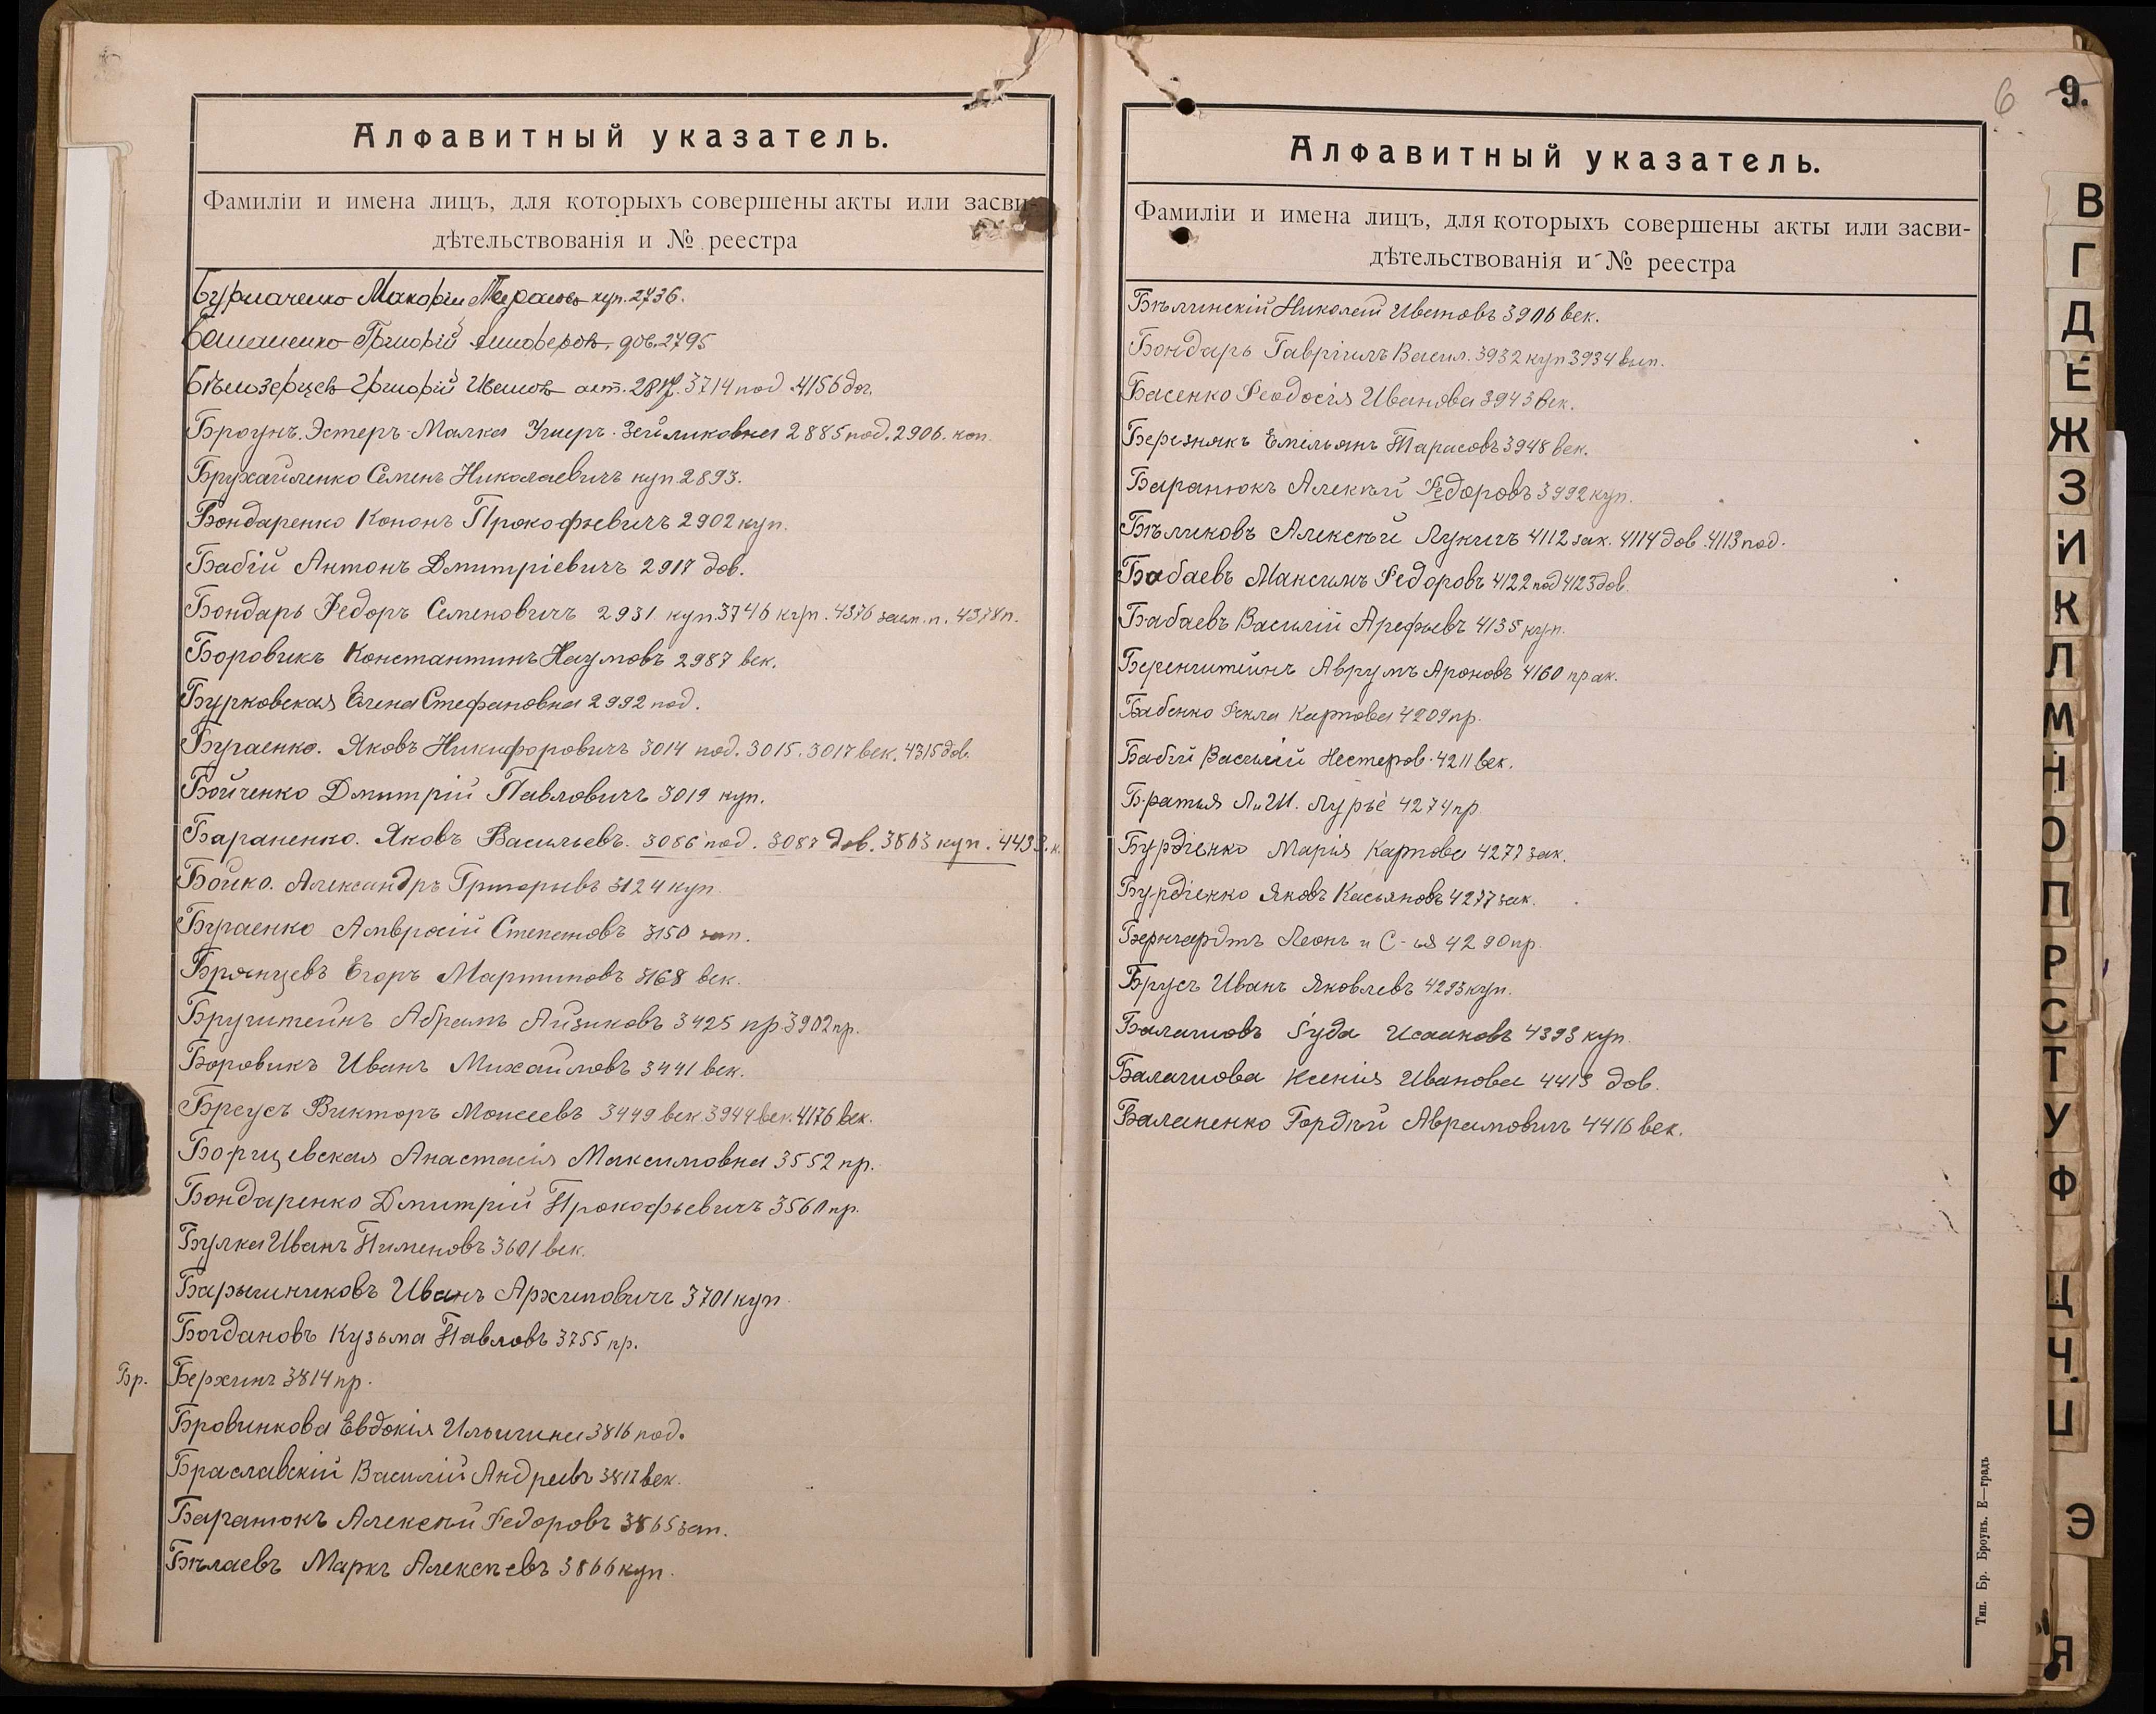 Алфавитный указатель.
Фамиліи и имена лицъ, для которыхъ совершены акты или засви-
дѣтельствованія и № реестра
Макарій куп. 2736.
Григорій дов. 2795
Бѣлозерцев Григорій Иванов 3714 под. 4156 дог.
Броунъ. Эстеръ-Малка Ушеръ-Зейликовна 2885 под. 2906. коп.
Бружайленко Семенъ Николаевичъ куп 2893.
Бондаренко Кононъ Прокофьевичъ 2902 куп.
Бабій Антонъ Дмитріевичъ 2917 дов.
Бондарь Федоръ Семеновичъ 2931 куп. 3746 куп. 4376 заем. п. 4378 п.
Боровикъ Константинъ Наумовъ 2987 век.
Бурковская Елена Стефановна 2992 под.
Бугаенко. Яковъ Никифоровичъ 3014 под. 3015. 3017 век. 4315 дов.
Бойченко Дмитрій Павловичъ 3019 куп.
Бараненко. Яковъ Васильевъ. 3086 под. 3087 дов. 3863 куп. 4433. к.
Бойко. Александръ Григорьевъ 3124 куп.
Бугаенко Амвросій Степановъ 3150 зап.
Брянцевъ Егоръ Мартиновъ 3168 век.
Бругштейнъ Абрамъ Айзиковъ 3425 пр. 3902 пр.
Боровикъ Иванъ Михайловъ 3441 век.
Бреусъ Викторъ Моисеевъ 3449 век. 3944 век. 4176 век.
Борщевская Анастасія Максимовна 3552 пр.
Бондаренко Дмитрій Прокофьевичъ 3560 пр.
Булка Иванъ Пименовъ 3601 век.
Барышниковъ Иванъ Архиповичъ 3701 куп.
Богдановъ Кузьма Павловъ 3755 пр.
Бр. Берхинъ 3814 пр.
Бровинкова Евдокія Ильинична 3816 под.
Браславскій Василій Андреевъ 3817 век.
Баранюкъ Алексѣй Федоровъ 3865 зап.
Бѣлаевъ Маркъ Алексѣевъ 3866 куп.
6 9.
Алфавитный указатель.
Фамиліи и имена лицъ, для которыхъ совершены акты или засви-
дѣтельствованія и № реестра
Бѣлинскій Николай Ивановъ 3906 век.
Бондарь Гавріилъ Васил. 3932 куп 3934 вып.
Басенко Феодосія Иванова 3943 век.
Березнякъ Емельянъ Тарасовъ 3948 век.
Баранюкъ Алексѣй Федоровъ 3992 куп.
Бѣликовъ Алексѣй Лукичъ 4112 зак. 4114 дов. 4113 под.
Бабаевъ Максимъ Федоровъ 4122 под 4123 дов.
Бабаевъ Василій Арефьевъ 4135 куп.
Беренштейнъ Аврумъ Ароновъ 4160 прак.
Бабенко Фекла Карпова 4209 пр.
Бабій Василій Нестеров. 4211 век.
Братья Л. и Ш. Лурье 4274 пр.
Бурдіенко Марія Карпова 4277 зак.
Бурдіенко Яковъ Касьяновъ 4277 зак.
Бернгардтъ Леонъ и С-ья 4290 пр.
Брусъ Иванъ Яковлевъ 4293 куп.
Балашовъ Іуда Исааковъ 4393 куп.
Балашова Ксенія Иванова 4413 дов.
Баланенко Гордѣй Аврамовичъ 4416 век.
Тип. Бр. Броунъ. Е—градъ
В
Г
Д
Е
Ж
З
И
К
Л
М
Н
О
П
Р
С
Т
У
Ф
Ц
Ч
Ш
Э
Я